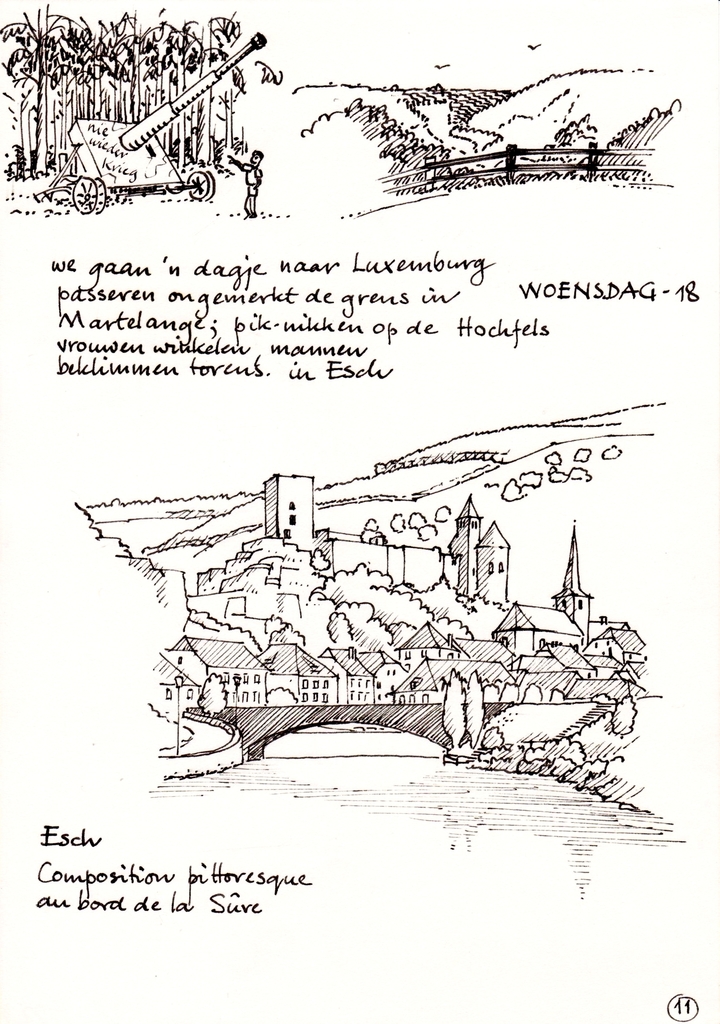 nie
wieder
krieg
we gaan 'n dagje naar Luxemburg
passeren ongemerkt de grens in
WOENSDAG - 18
Martelange; pik-nikken op de Hochfels
vrouwen winkelen, mannen
beklimmen torens. in Esch
Esch
Composition pittoresque
au bord de la Sûre
11